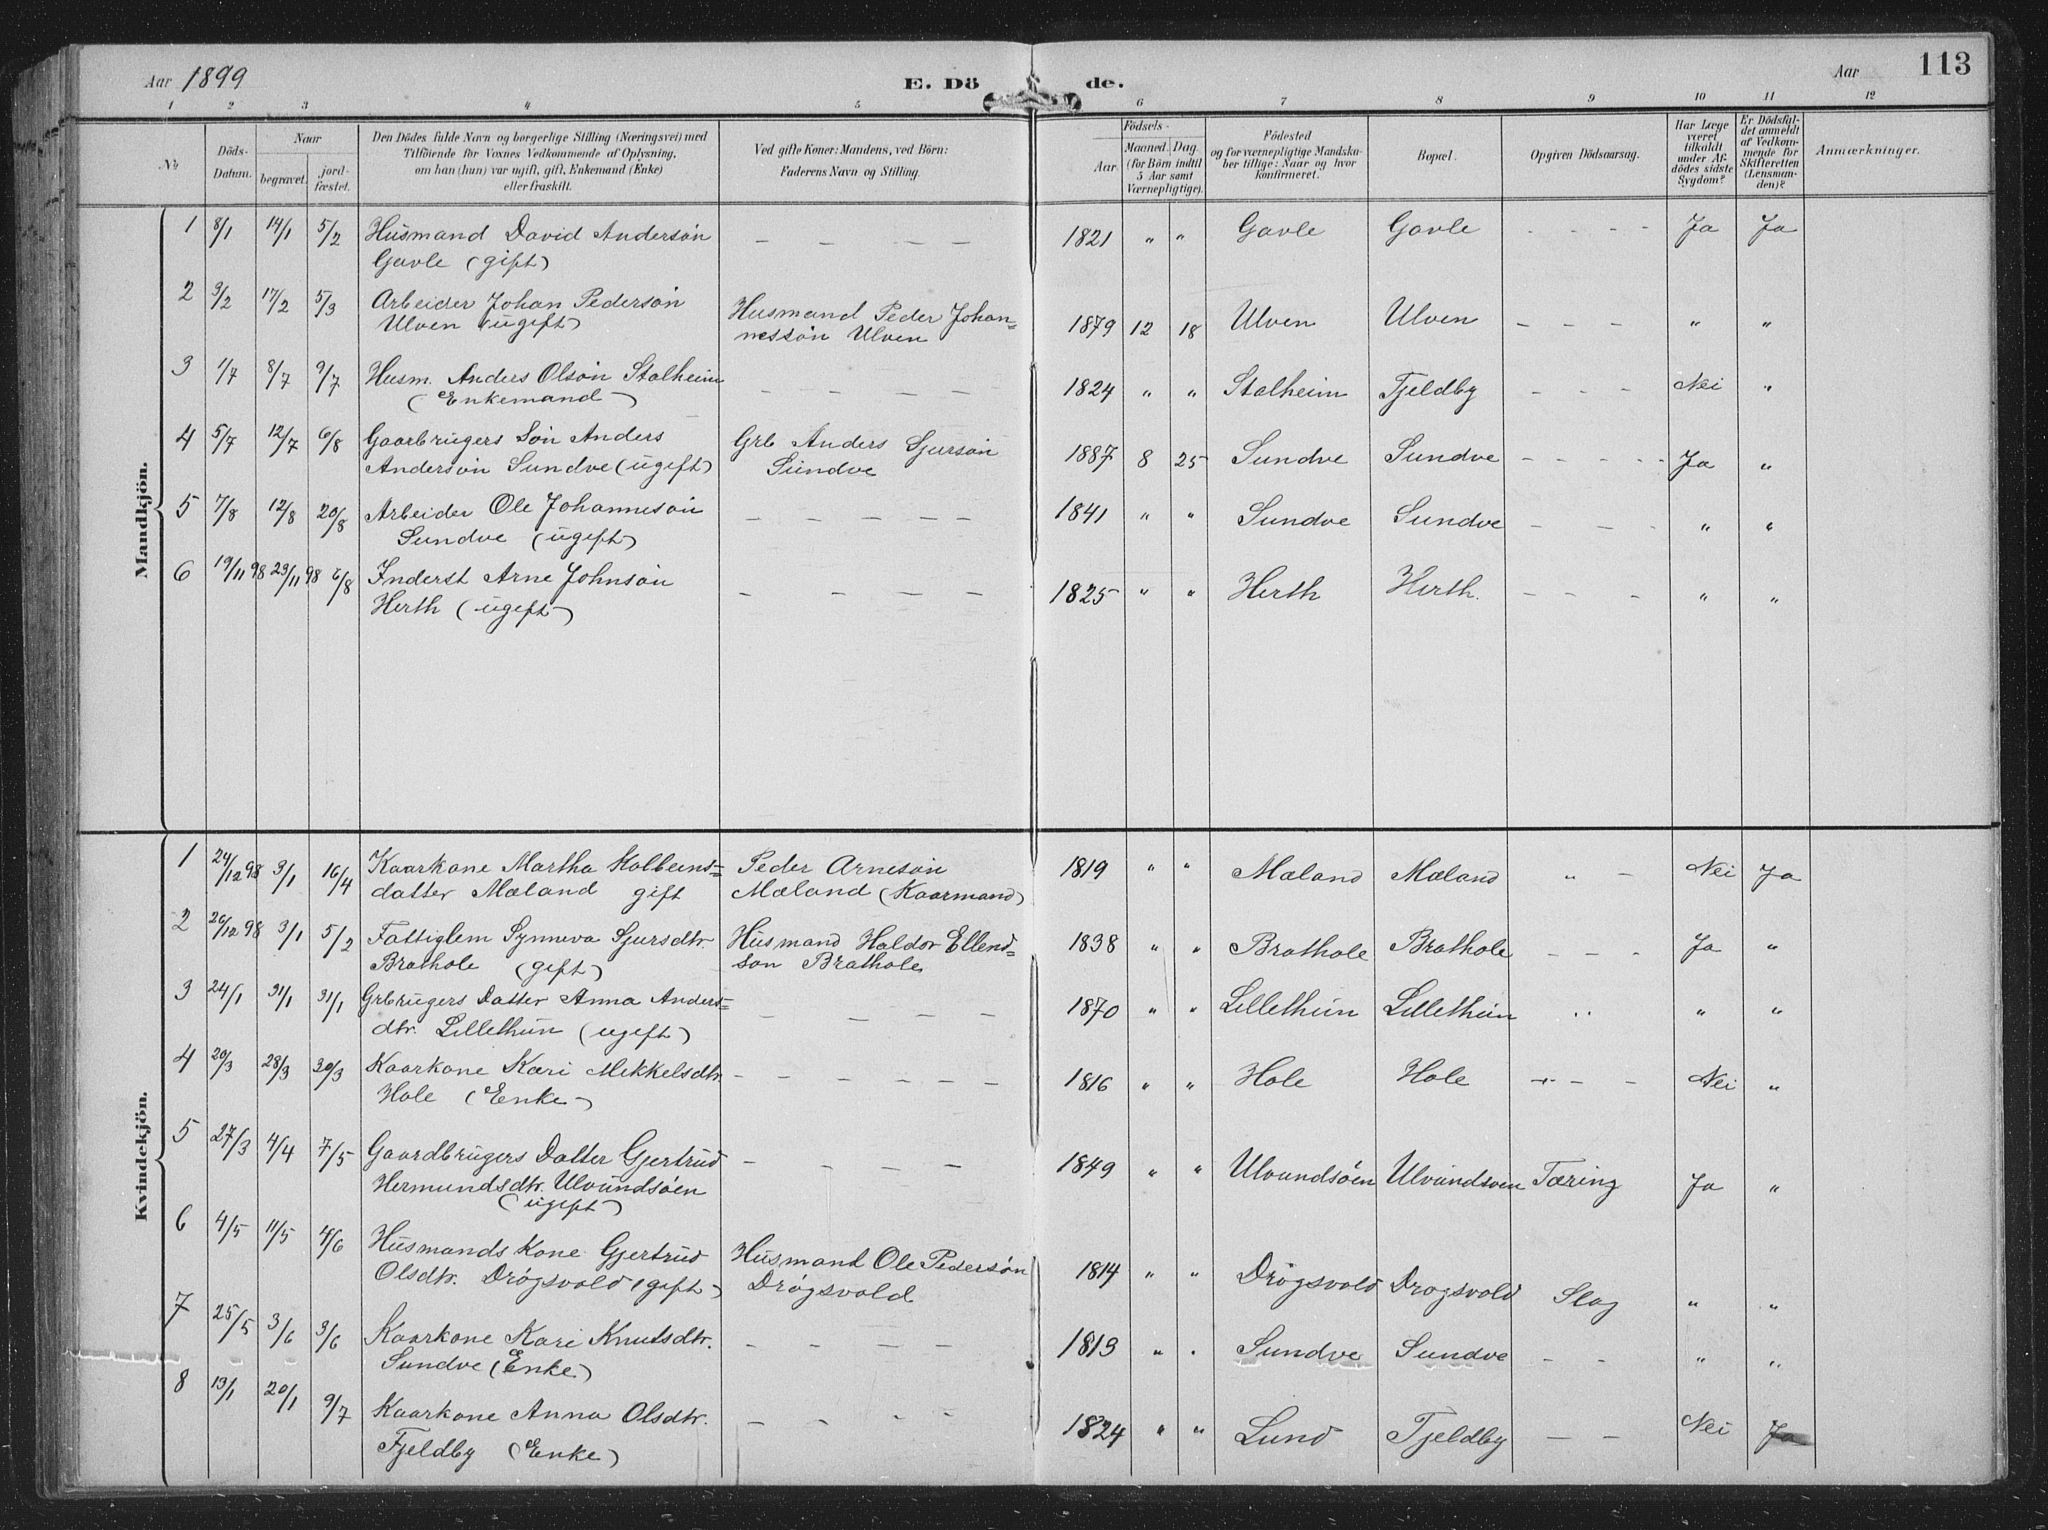 Aar 1899 E. Dö de. Aar 113
1 2 3 4 5 6 7 8 9 10 11 12
No
Döds-
Datum.
Naar
begravet.
jord-
fæstet.
Den Dödes fulde Navn og borgerlige Stilling (Næringsvei) med
Tilföiende för Voxnes Vedkommende af Oplysning,
om han (hun) var ugift, gift, Enkemand (Enke)
eller fraskilt.
Ved gifte Koner: Mandens, ved Börn:
Faderens Navn og Stilling.
Födsels-
Aar.
Maaned. Dag.
(for Börn indtil
5 Aar samt
Værnepligtige).
Födested
og for værnepligtige Mandska-
ber tillige: Naar og hvor
konfirmeret.
Bopæl.
Opgiven Dödsaarsag.
Har Læge
været
tilkaldt
under Af-
dödes sidste
Sygdom?
Er Dödsfal-
det anmeldt
af Vedkom-
mende for
Skifteretten
(Lensman-
den)?
Anmærkninger.
Mandkjön.
1 8/1 14/1 5/2 Husmand David Andersøn — — — — 1821 " " Gavle Gavle - - - - Ja Ja
Gavle (gift)
2 3/2 17/2 5/3 Arbeider Johan Pedersøn Husmand Peder Johan= 1879 12 18 Ulven Ulven - - - " "
Ulven (ugift) nessøn Ulven
3 1/7 8/7 9/7 Husm. Anders Olsøn Stalheim — — — — 1824 " " Stalheim Fjeldby - - - Nei "
(Enkemand)
4 5/7 12/7 6/8 Gaarbrugers Søn Anders Grb Anders Sjursøn 1887 8 25 Sundve Sundve - - - - Ja "
Andersøn Sundve (ugift) Sundve
5 7/8 12/8 20/8 Arbeider Ole Johannesøn — — — — — 1841 " " Sundve Sundve - - - " "
Sundve (ugift)
6 19/11 98 23/11 98 6/8 Inderst Arne Johnsøn — — — — 1825 " " Herth Herth. - - - " "
Herth (ugift)
Kvindekjön.
1 24/12 98 3/1 16/4 Kaarkone Martha Kolbeins= Peder Arnesøn 1819 " " Mæland Mæland " - Nei Ja
datter Mæland gift Mæland (Kaarmand)
2 26/12 98 3/1 5/2 Fattiglem Synneva Sjursdtr. Husmand Haldor Ellend= 1838 " " Brathole Brathole - - - Ja "
Brathole (gift) søn Brathole
3 24/1 31/1 31/1 Grbrugers Datter Anna Anders= — — — — — 1870 " " Lillethun Lillethun " " "
dtr. Lillethun (ugift)
4 20/3 28/3 30/3 Kaarkone Kari Mikkelsdtr. — — — — — — 1816 " " Hole Hole - - - Nei "
Hole (Enke)
5 27/3 4/4 7/5 Gaardbrugers Datter Gjertrud — — — — 1849 " " Ulvundsøen Ulvundsøen Tæring Ja "
Hermundsdtr. Ulvundsøen
(ugift)
6 4/5 11/5 4/6 Husmands Kone Gjertrud Husmand Ole Pedersøn 1814 " " Drøgsvold Drøgsvold Slag " "
Olsdtr. Drøgsvold (gift) Drøgsvold
7 25/5 3/6 3/6 Kaarkone Kari Knutsdtr. — — — — 1813 " " Sundve Sundve - - " "
Sundve (Enke)
8 13/1 20/1 9/7 Kaarkone Anna Olsdtr. — — — — 1824 " " Lund Fjeldby — — Nei Ja
Fjeldby (Enke)